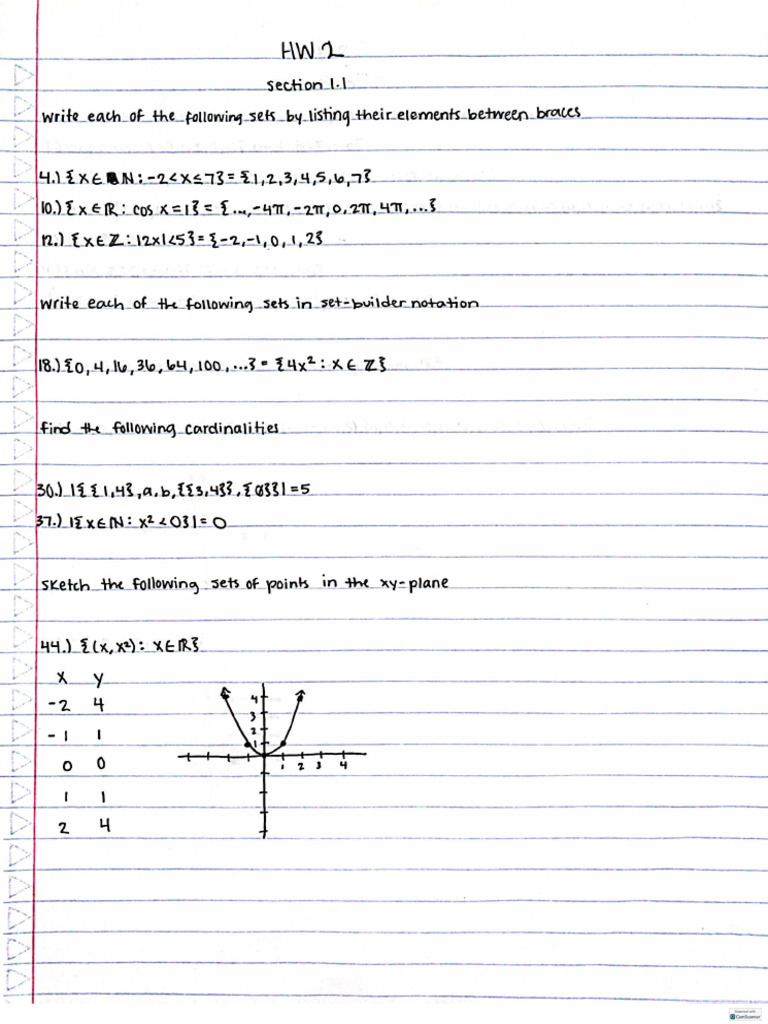 HW 2
section 1.1
write each of the following sets by listing their elements between braces
4.) {x∈ℕ: -2<x≤7} = {1,2,3,4,5,6,7}
10.) {x∈ℝ: cos x=1} = {..., -4π, -2π, 0, 2π, 4π, ...}
12.) {x∈ℤ: |2x|<5} = {-2,-1,0,1,2}
write each of the following sets in set-builder notation
18.) {0,4,16,36,64,100,...} = {4x²: x∈ℤ}
find the following cardinalities
30.) |{{1,4},a,b,{{3,4}},{∅}}| = 5
37.) |{x∈ℕ: x²<0}| = 0
sketch the following sets of points in the xy-plane
44.) {(x,x²): x∈ℝ}
x y
-2 4
-1 1
0 0
1 1
2 4
4
3
2
1
1 2 3 4
Scanned with
CamScanner